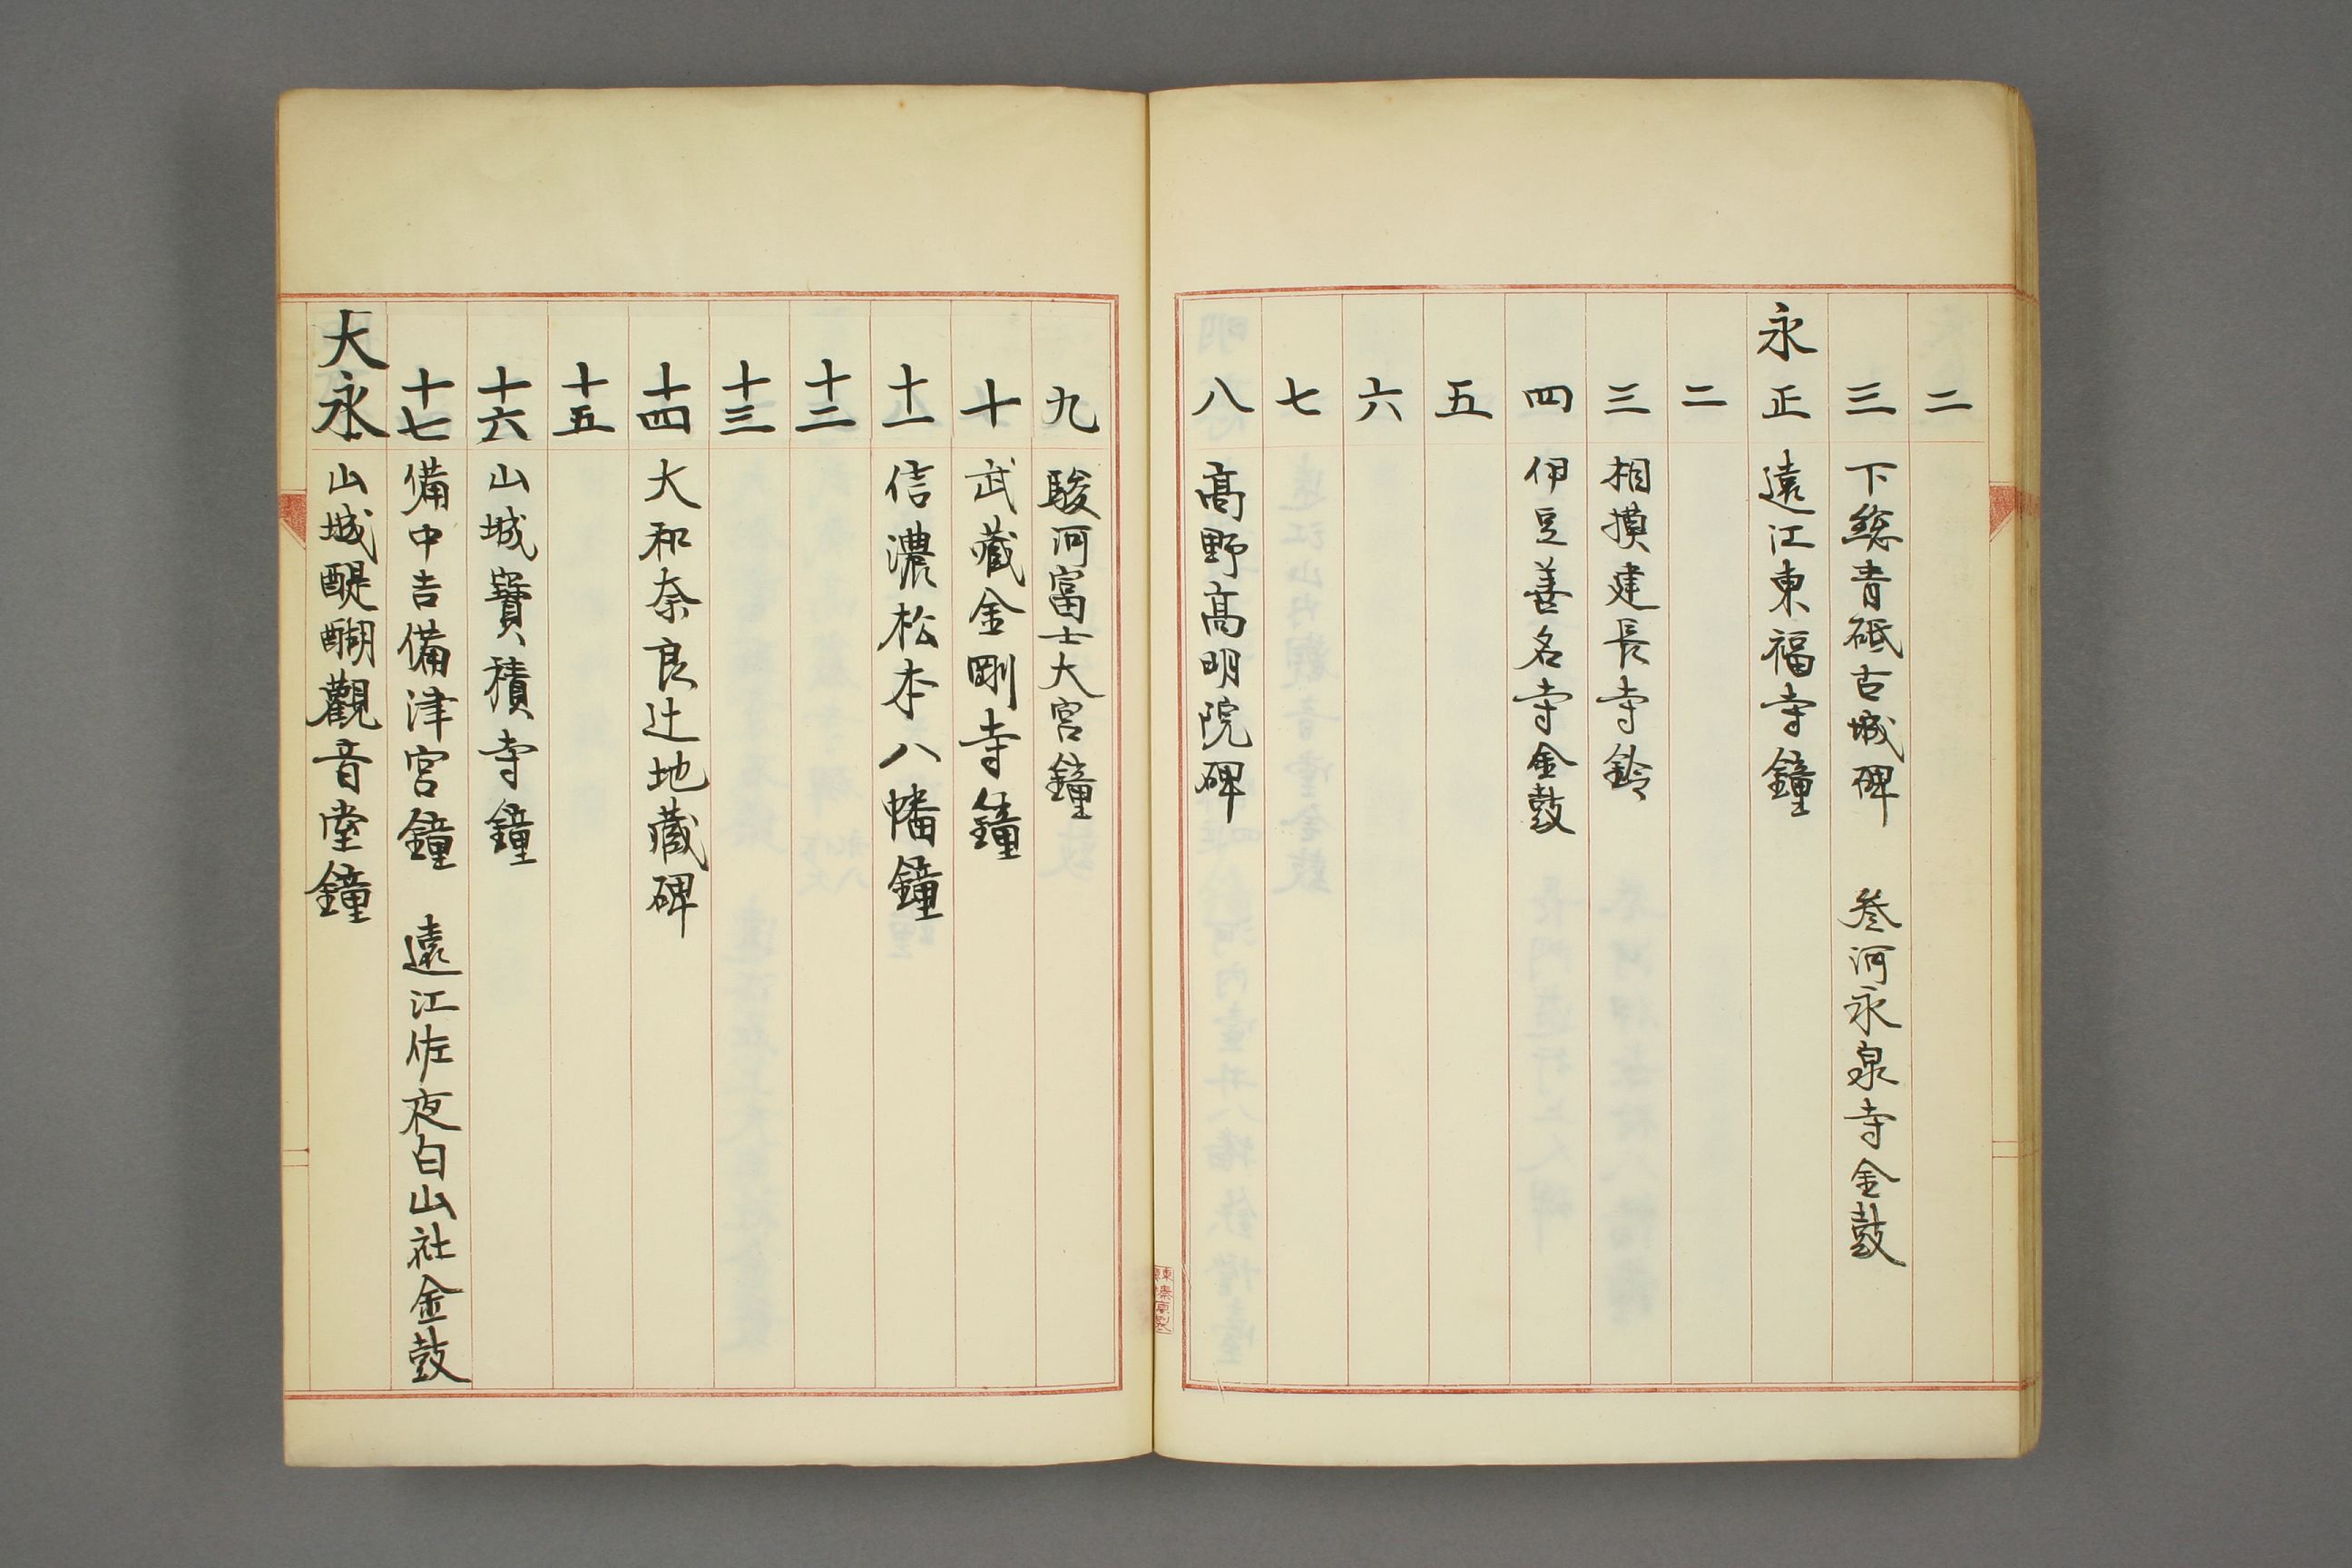 二
三 下総青砥古城碑 叄河永泉寺金鼓
永正 遠江東福寺鐘
二
三 相摸建長寺鈴
四 伊豆善名寺金鼓
五
六
七
八 高野高明院碑
九 駿河富士大宮鐘
十 武藏金剛寺鐘
十一 信濃松本八幡鐘
十二
十三
十四 大和奈良辻地藏碑
十五
十六 山城寶積寺鐘
十七 備中吉備津宮鐘 遠江佐夜白山社金鼓
大永 山城醍醐觀音堂鐘